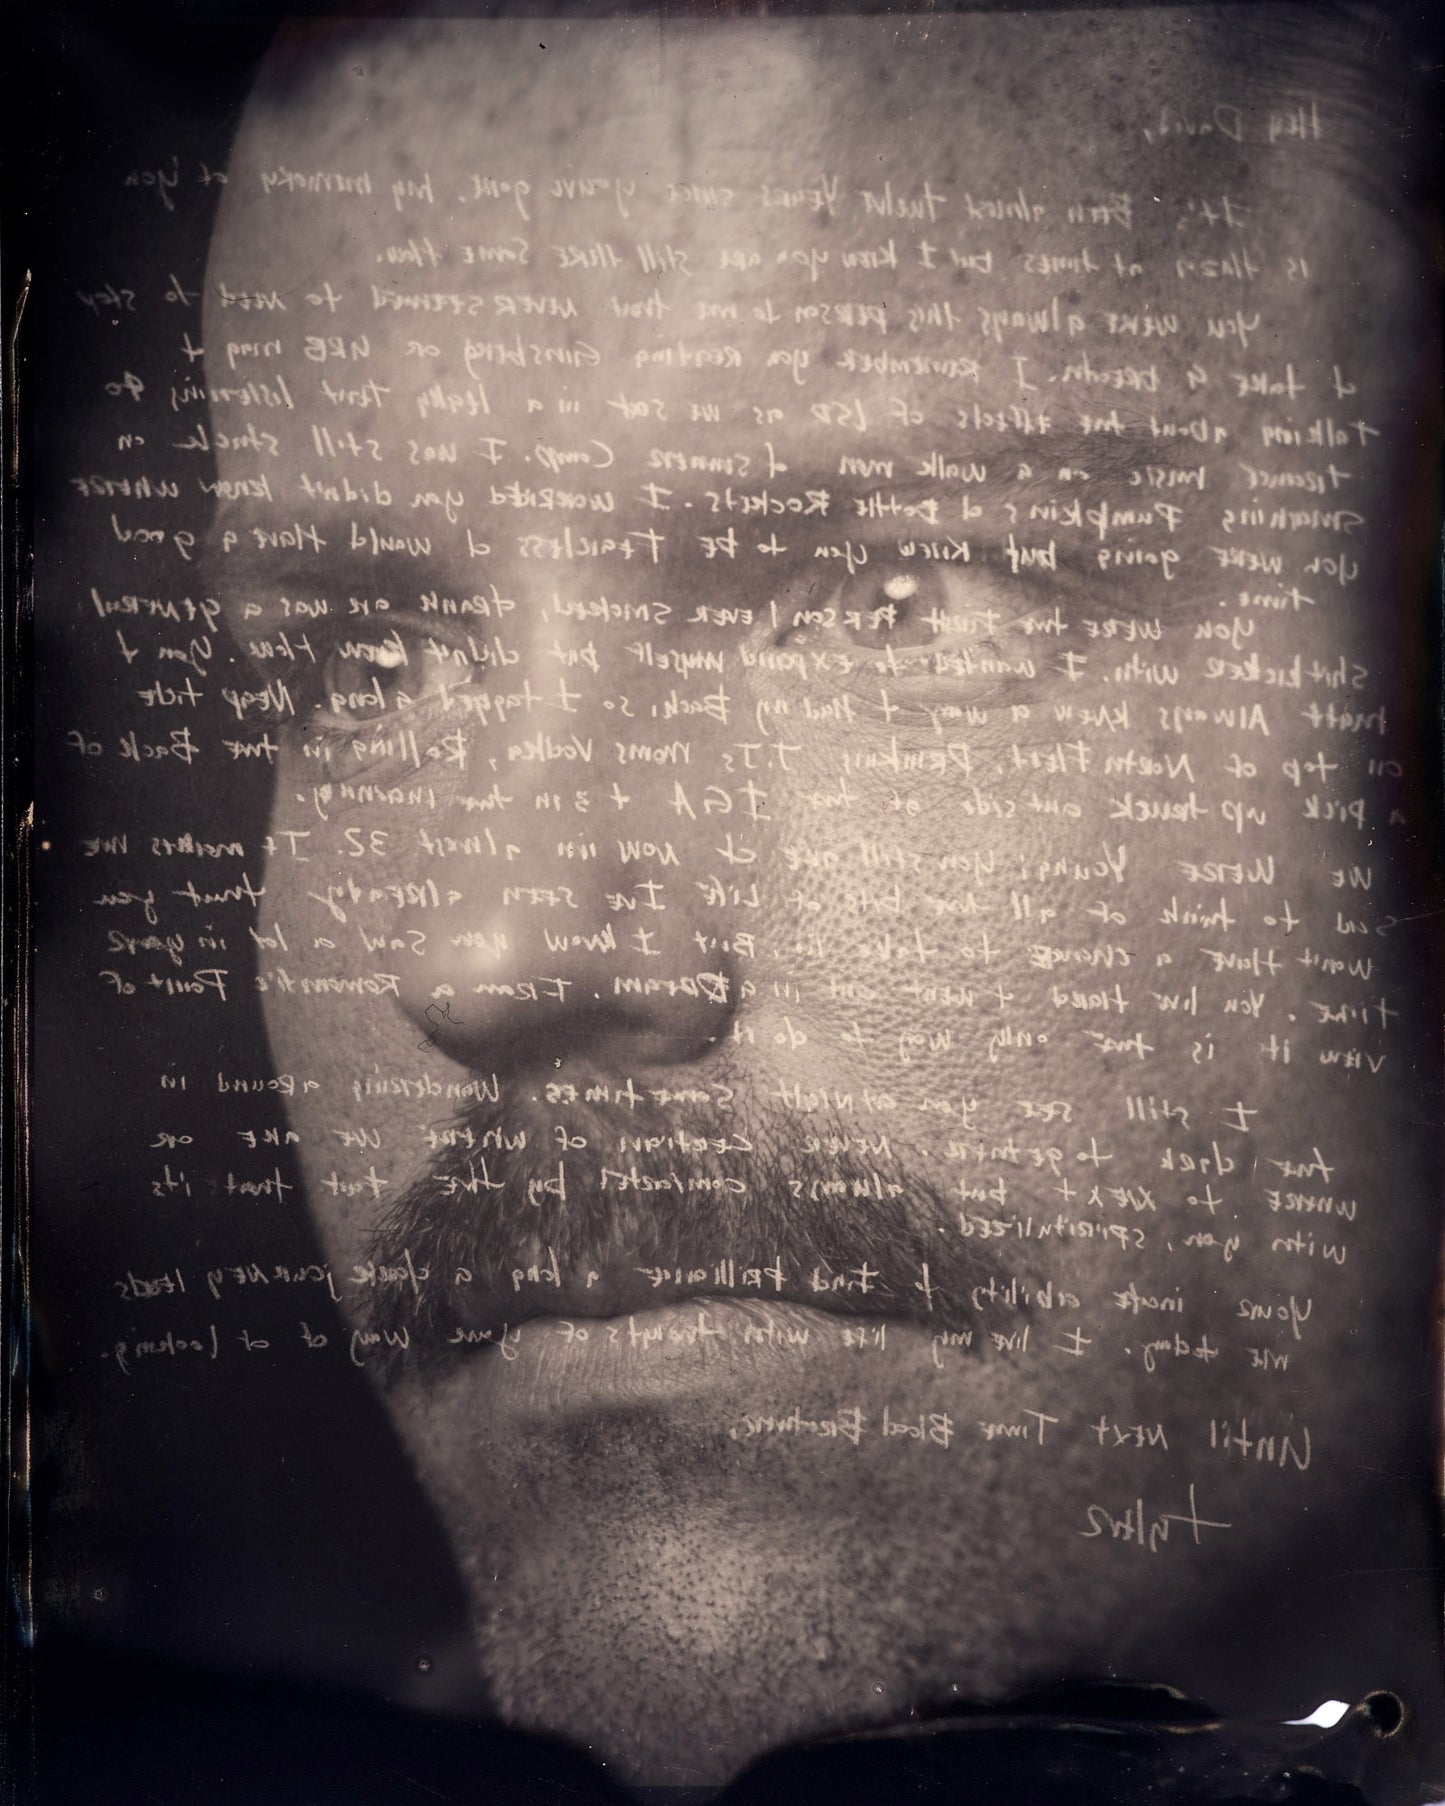 Hey David,
It's Been almost twelve Years since youve gone. My memory of you
is Hazy at times but I know you are still HERE Some How.
You were always this person to me that never seemed to need to stop
& take a breath. I remember you Reading Ginsberg or
talking about the effects of LSD as we sat in a leaky tent listening to
trance music on a walk man & summer Camp. I was still stuck on
Smashing Pumpkins & Bottle Rockets. I worried you didn't know where
you were going but knew you to be Fearless & would Have a good
time.
You were the first Person I ever smoked, drank or was a general
Shitkicker with. I wanted to expand myself but didnt know How. You &
Matt Always knew a way & Had my Back, so I tagged along. Neap tide
on top of North Fleet, Drinking J.J.s Moms Vodka, Rolling in the Back of
a pick up truck outside of the IGA + 3 in the morning.
We were Young; you still are & now im almost 32. It makes me
sad to think of all the bits of Life Ive seen already that you
wont Have a chance to take in. But I know you saw a lot in your
time. You liv Hard & went out in a Dream. From a Romantic Point of
view it is the only way to do it.
I still see you at Night Sometimes. Wandering around in
the dark together. Never certain of where we are or
where to next but always comforted by the fact that its
with you, spiritulized.
Your inate ability to find brilliance along a dark journey leads
me today. I live my life with thoughts of your way of looking.
Until Next Time Blood Brother,
Tyler